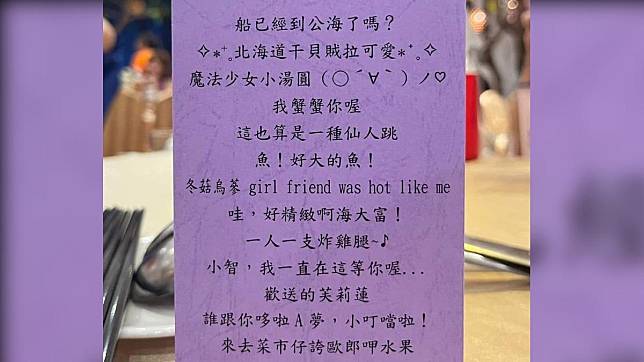 船已經到公海了嗎？
✧*⁺˳北海道干貝賊拉可愛*⁺˳✧
魔法少女小湯圓（◯ˊ∀ˋ）ノ♡
我蟹蟹你喔
這也算是一種仙人跳
魚！好大的魚！
冬菇烏蔘 girl friend was hot like me
哇，好精緻啊海大富！
一人一支炸雞腿~♪
小智，我一直在這等你喔...
歡送的芙莉蓮
誰跟你哆啦A夢，小叮噹啦！
來去菜市仔誇歐郎呷水果